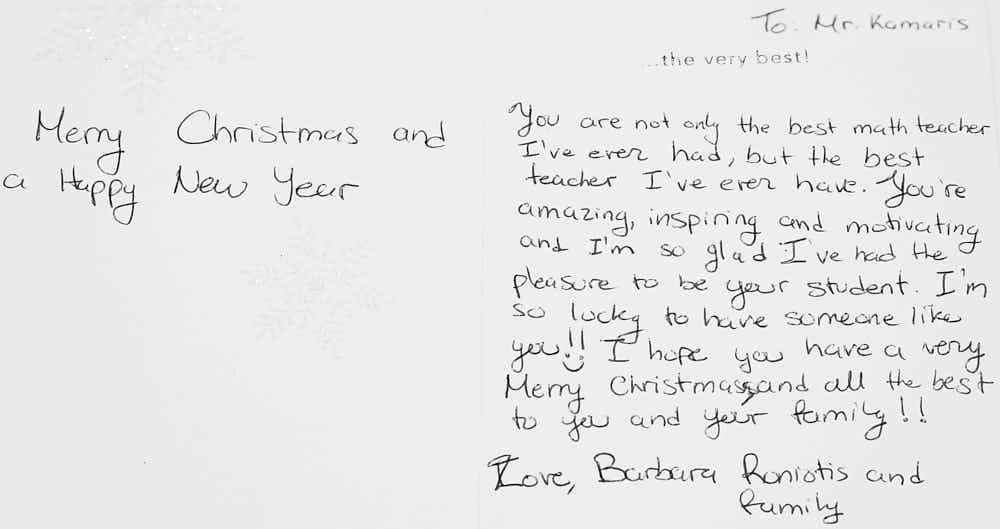 Merry Christmas and
a Happy New Year
To: Mr. Kamaris
...the very best!
You are not only the best math teacher
I've ever had, but the best
teacher I've ever have. You're
amazing, inspiring and motivating
and I'm so glad I've had the
pleasure to be your student. I'm
so lucky to have someone like
you!! I hope you have a very
Merry Christmas and all the best
to you and your family!!
Love, Barbara Roniotis and
family